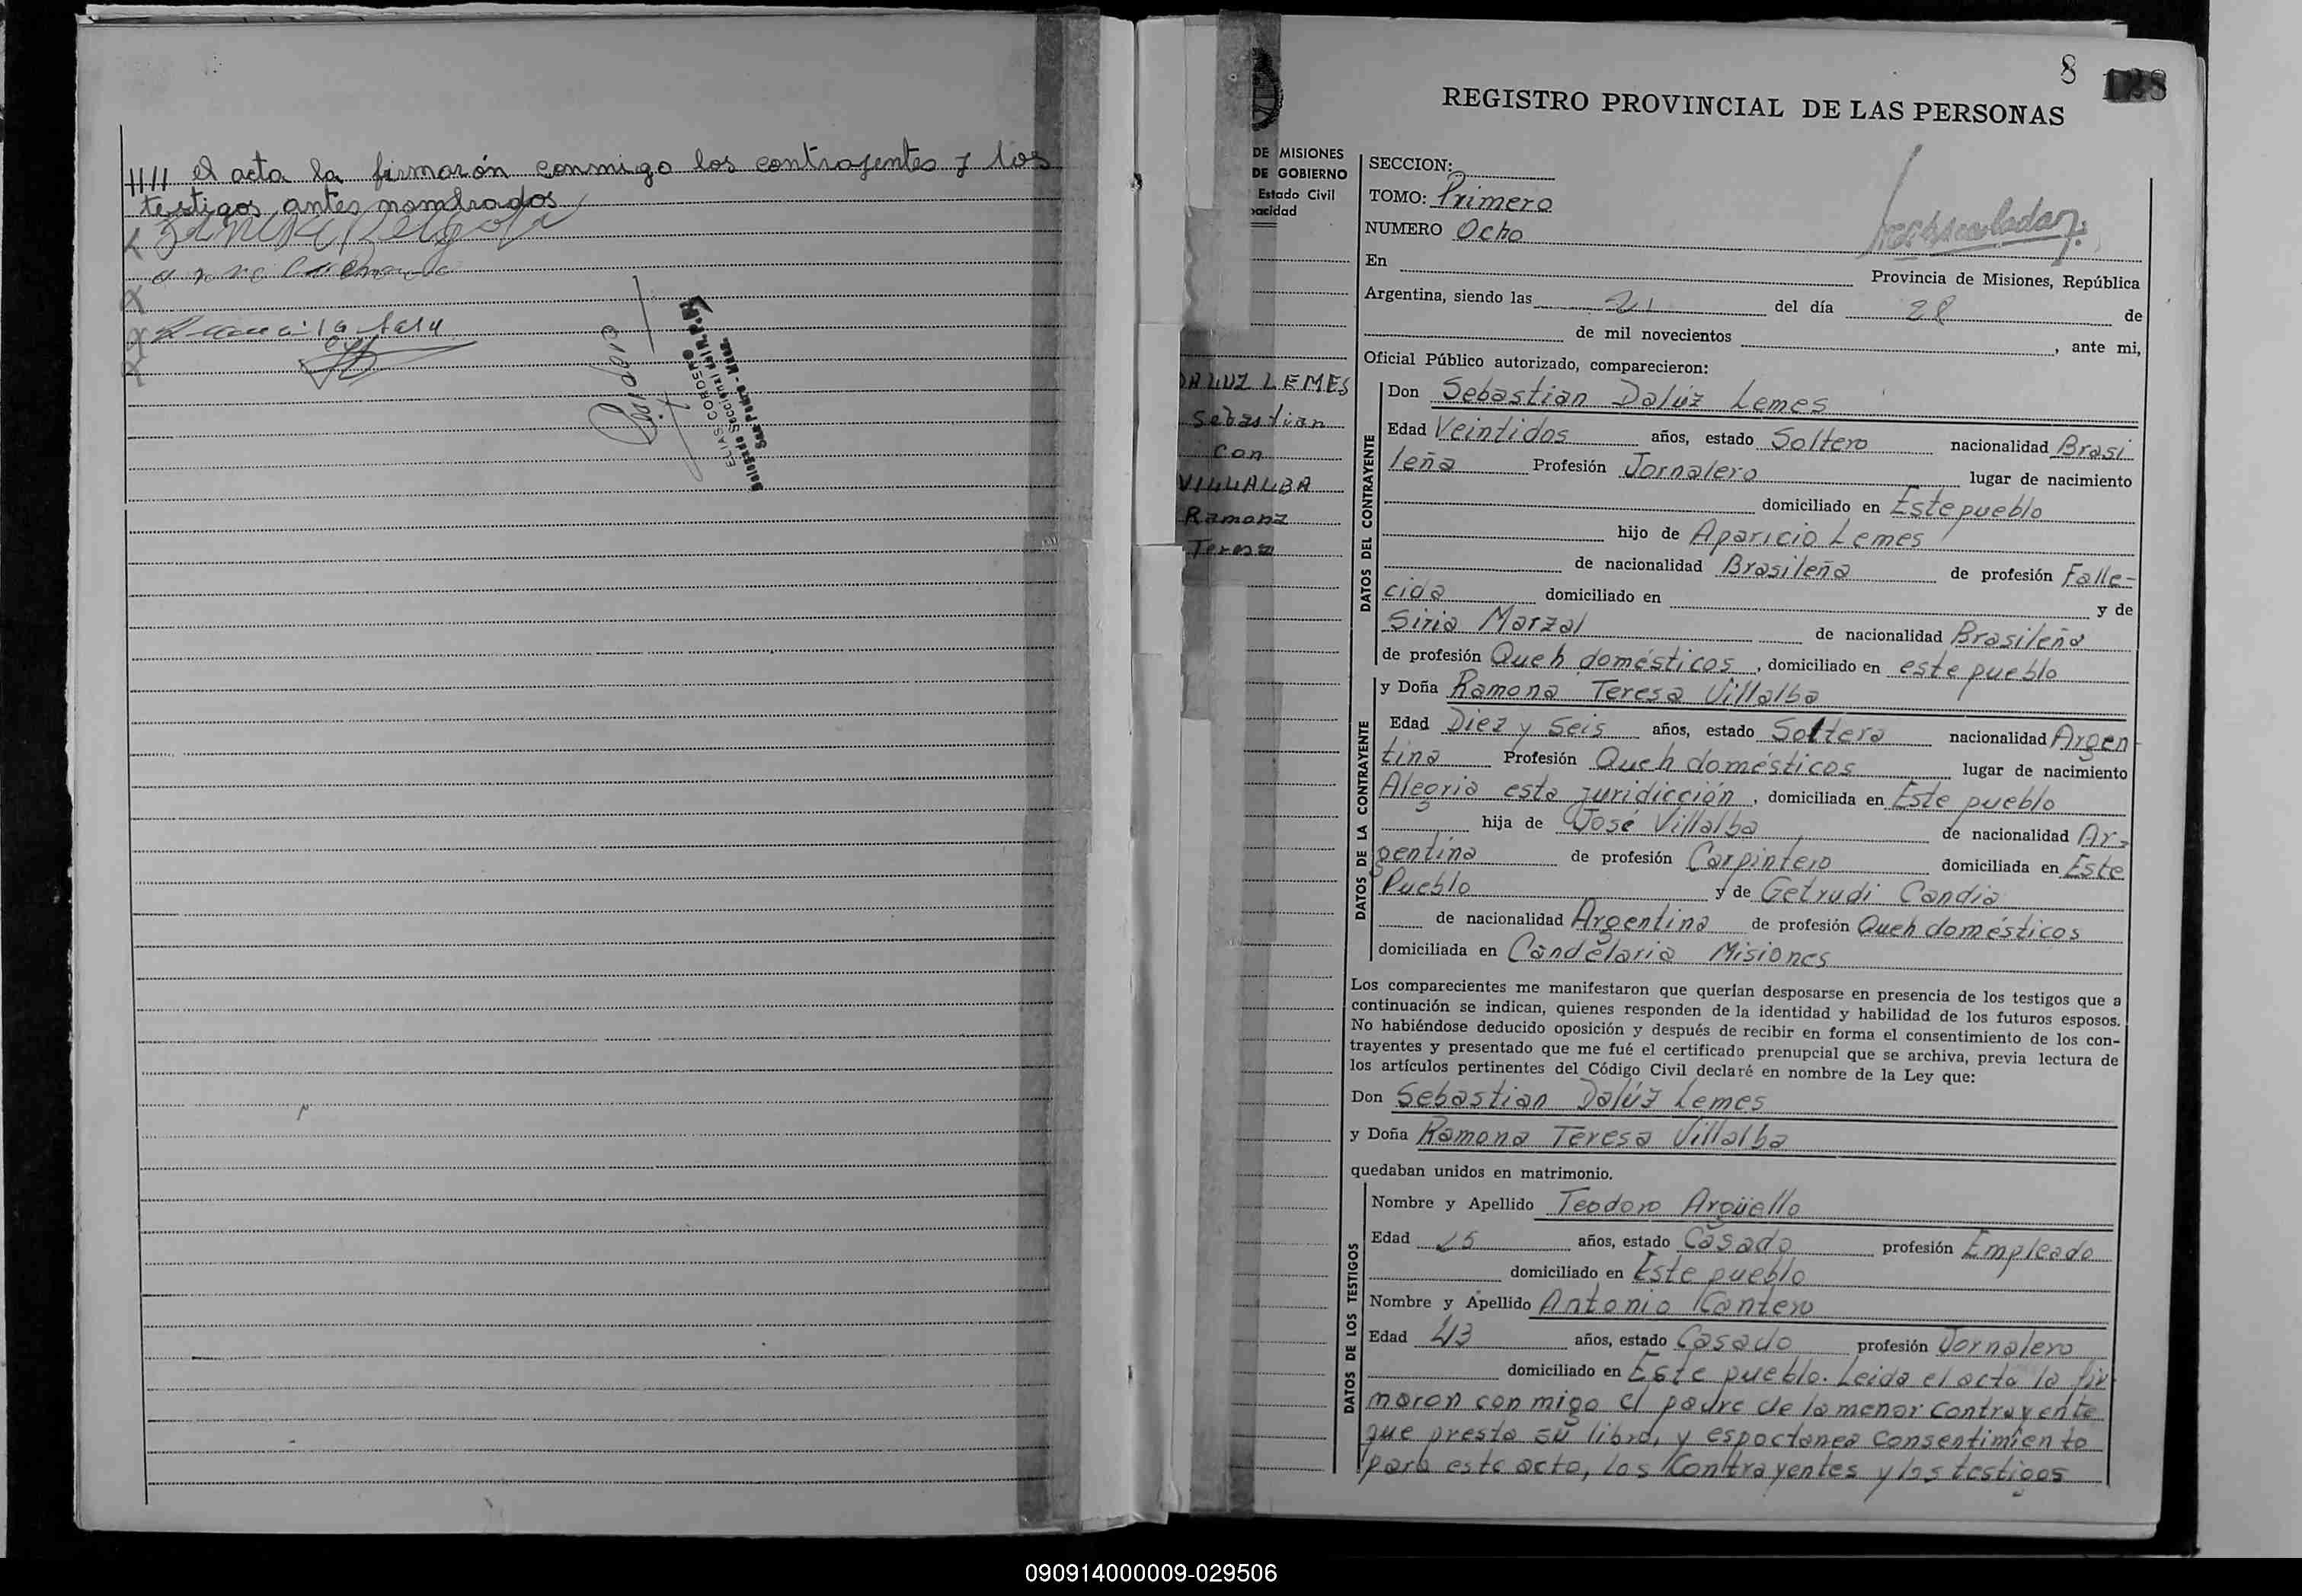 //// el acta la firmarón conmigo los contrajentes y los
testigos antes nombrados
ELIAS CORDERO
8
REGISTRO PROVINCIAL DE LAS PERSONAS
DE MISIONES
DE GOBIERNO
Estado Civil
pacidad
DALUZ LEMES
Sebastian
con
VILLALBA
Ramona
Teresa
SECCION:
TOMO: Primero
NUMERO Ocho
En Provincia de Misiones, República
Argentina, siendo las del día 28 de
de mil novecientos , ante mi,
Oficial Público autorizado, comparecieron:
DATOS DEL CONTRAYENTE
Don Sebastian Dalúz Lemes
Edad Veintidos años, estado Soltero nacionalidad Brasi
leña Profesión Jornalero lugar de nacimiento
domiciliado en Este pueblo
hijo de Aparicio Lemes
de nacionalidad Brasileña de profesión Falle-
cida domiciliado en y de
Siria Marzal de nacionalidad Brasileña
de profesión Queh domésticos, domiciliado en este pueblo
DATOS DE LA CONTRAYENTE
y Doña Ramona Teresa Villalba
Edad Diez y Seis años, estado Soltera nacionalidad Argen
tina Profesión Queh domésticos lugar de nacimiento
Alegria esta juridicción, domiciliada en Este pueblo
hija de José Villalba de nacionalidad Ar-
gentina de profesión Carpintero domiciliada en Este
Pueblo y de Getrudi Candia
de nacionalidad Argentina de profesión Queh domésticos
domiciliada en Candelaria Misiones
Los comparecientes me manifestaron que querían desposarse en presencia de los testigos que a
continuación se indican, quienes responden de la identidad y habilidad de los futuros esposos.
No habiéndose deducido oposición y después de recibir en forma el consentimiento de los con-
trayentes y presentado que me fué el certificado prenupcial que se archiva, previa lectura de
los artículos pertinentes del Código Civil declaré en nombre de la Ley que:
Don Sebastian Dalúz Lemes
y Doña Ramona Teresa Villalba
quedaban unidos en matrimonio.
DATOS DE LOS TESTIGOS
Nombre y Apellido Teodoro Argüello
Edad años, estado Casado profesión Empleado
domiciliado en Este pueblo
Nombre y Apellido Antonio Kantero
Edad 43 años, estado Casado profesión Jornalero
domiciliado en Este pueblo. Leida el acta la fir
maron con migo el padre de la menor contrayente
que presta su libro, y espoctanea consentimiento
para este acto, los Contrayentes y los testigos
090914000009-029506